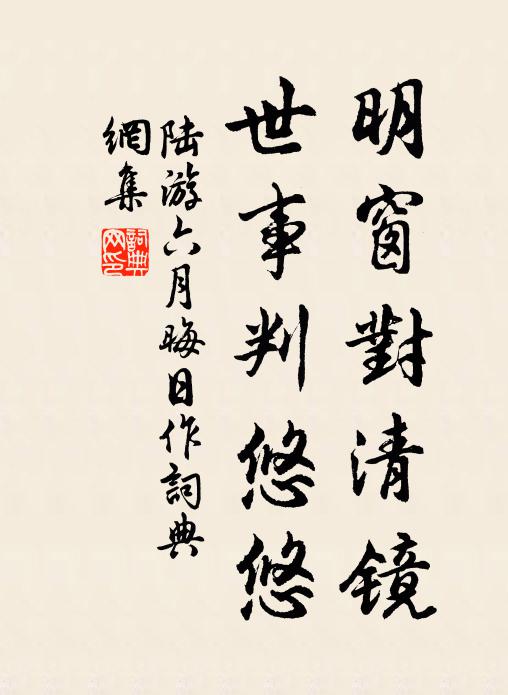 明窗對清镜
世事判悠悠
陆游六月晦日作詞典
網集
詞典
网印